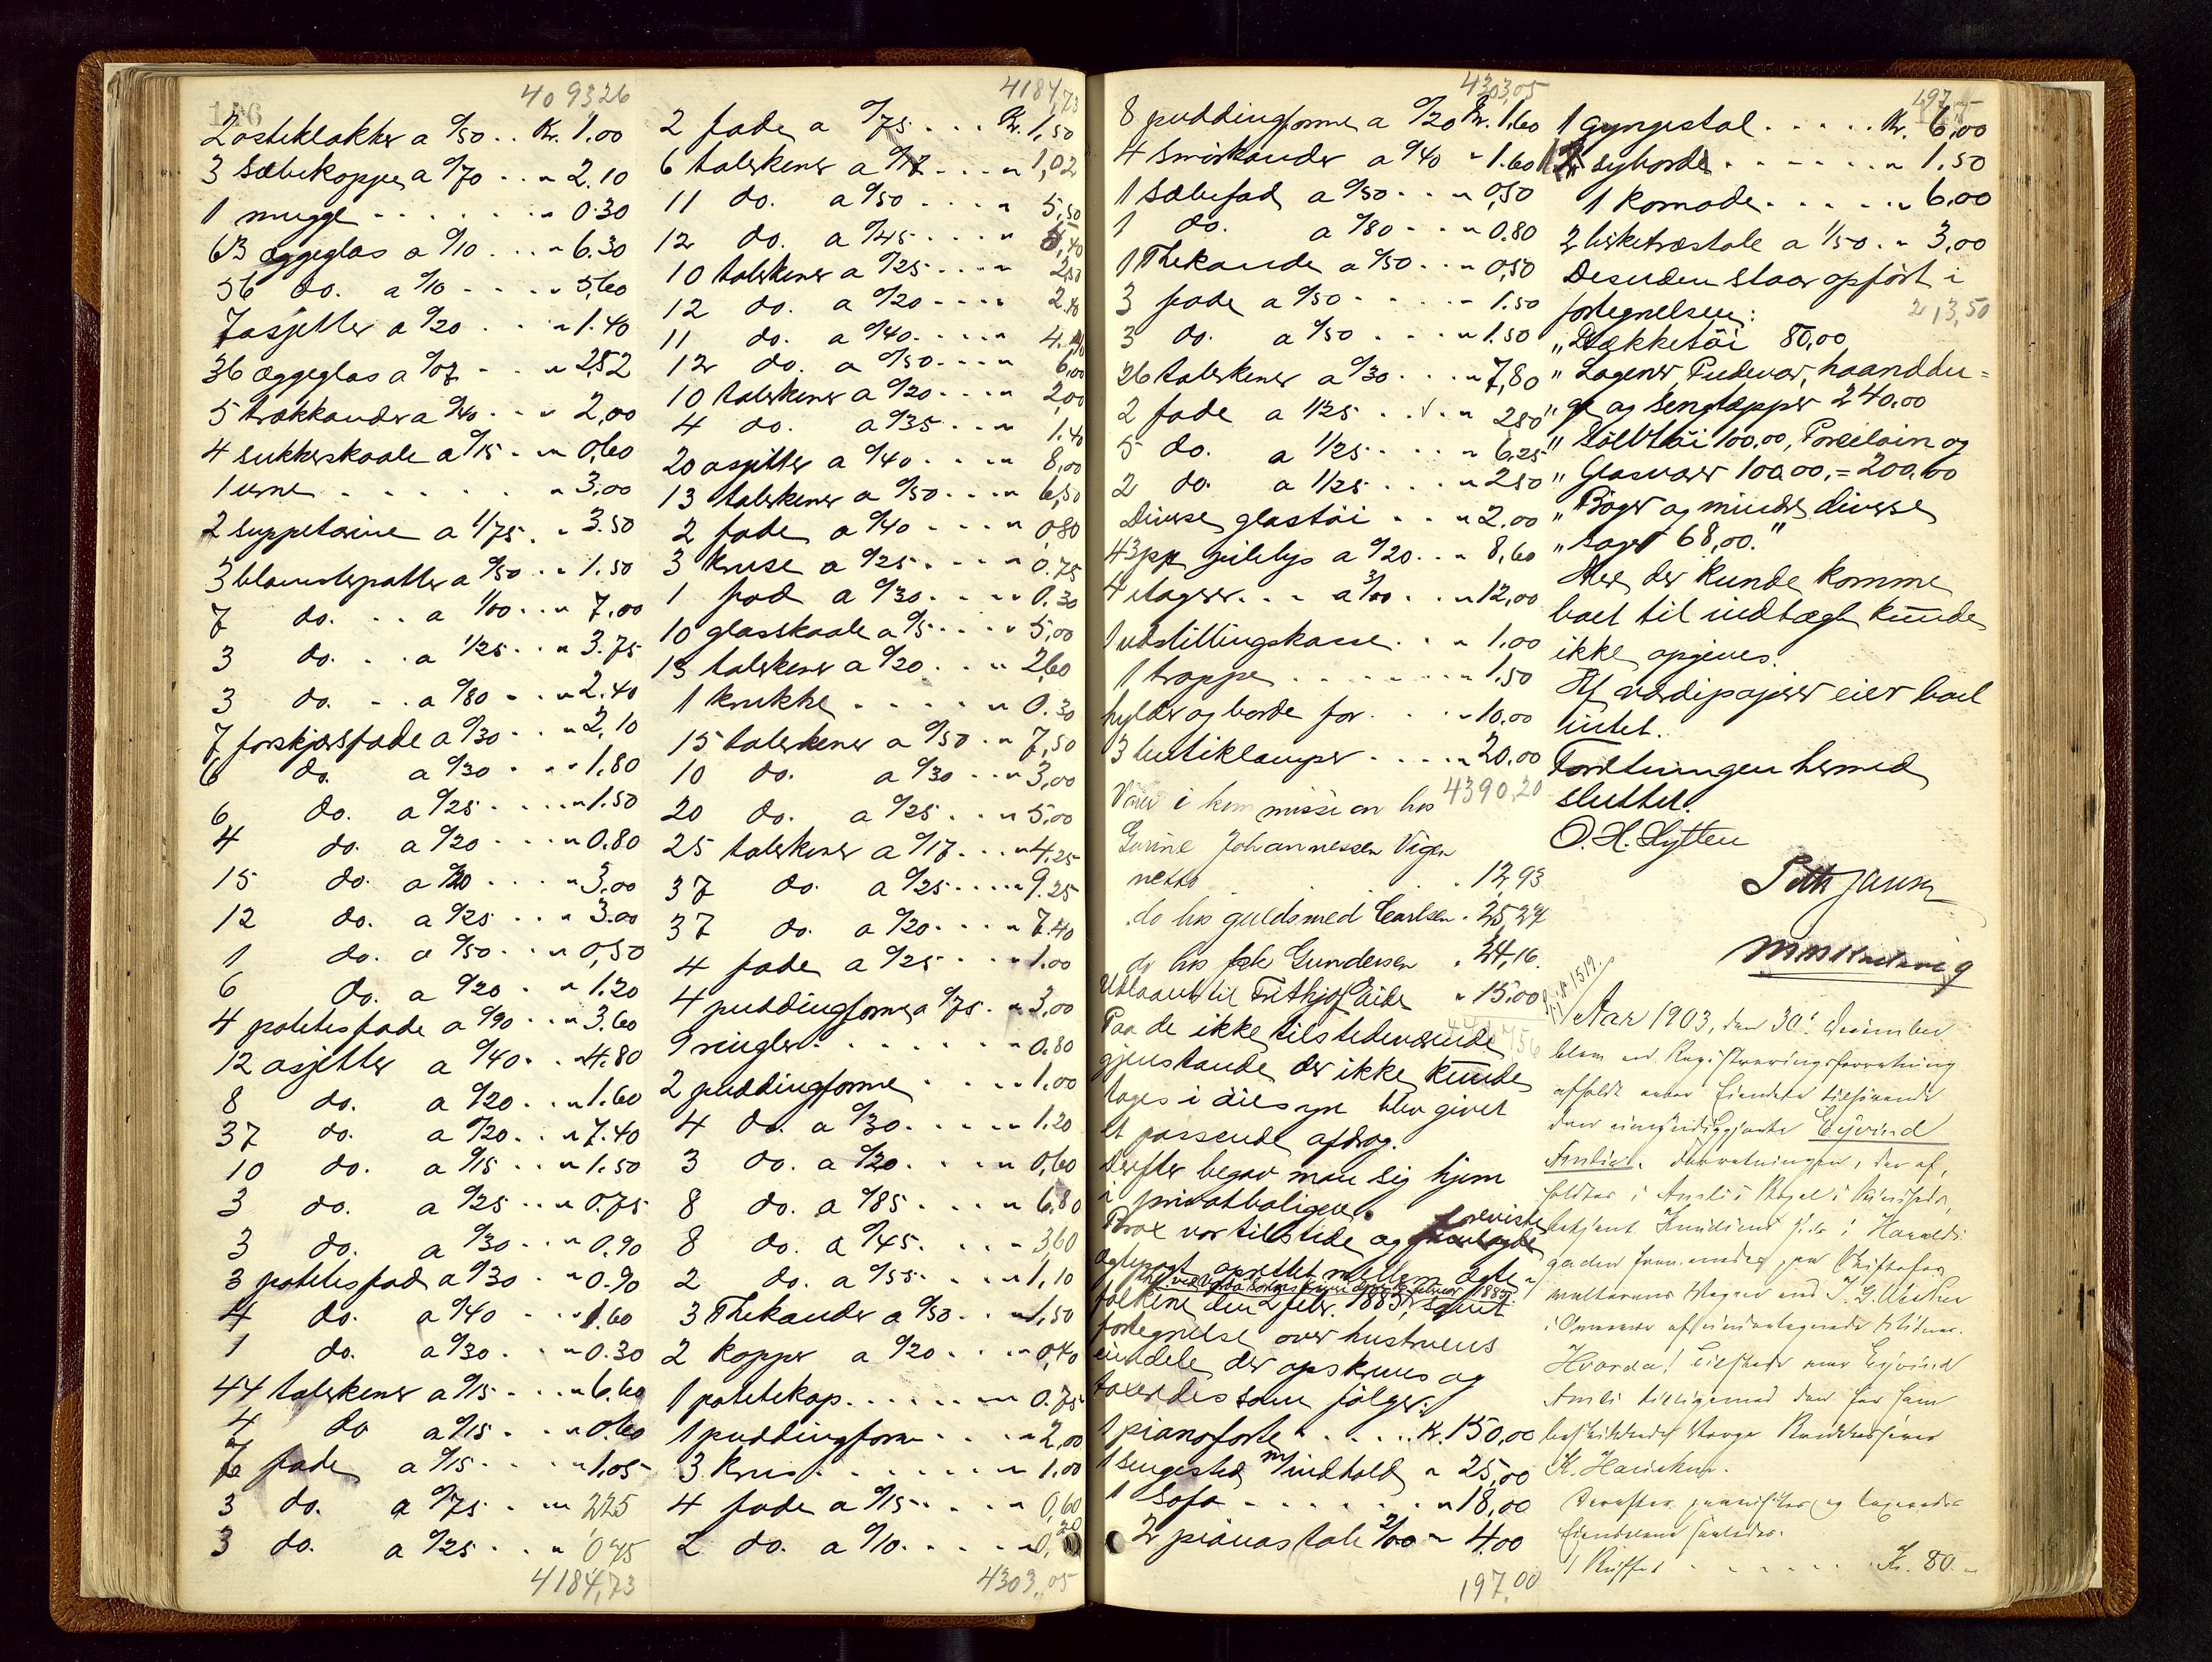 156
409326
2 osteklokker a %50 .. Kr. 1.00
3 Sæbekopper a %70 .. " 2.10
1 mugge ...... " 0.30
63 æggeglas a %10 ... " 6.30
56 do. a %10 .... " 5,60
7 asjetter a %20 ... " 1.40
36 æggeglas a %07 .. " 2,52
5 trækkander a %40 ... " 2,00
4 sukkerskaale a %15 .. " 0,60
1 urne ....... " 3,00
2 suppeterine a 1/75 . " 3.50
3 blomsterpotter a %50 .. " 1.50
7 do. .. a 1/00 .. " 7.00
3 do. .. a 1/25 .. " 3.75
3 do. .. a %80 .. " 2.40
7 forskjærsfade a %30 .. " 2,10
6 do. a %30 ... " 1.80
6 do. a %25 .... " 1.50
4 do. a %20 ... " 0.80
15 do. a %20 .... " 3,00
12 do. a %25 ... " 3.00
1 do. a %50 ... " 0,50
6 do. a %20 . " 1.20
4 potetesfade a %90 .. " 3.60
12 asjetter a %40 .. " 4.80
8 do. a %20 .. " 1.60
37 do. a %20 .. " 7.40
10 do. a %15 .. " 1.50
3 do. a %25 .. " 0.75
3 do. a %30 .. " 0.90
3 potetesfad a %30 . " 0.90
4 do. a %40 .... 1.60
1 do. a %30 .. " 0.30
44 talerkener a %15 ... " 6.60
4 do a %15 .. " 0.60
7 fade a %15 .... " 1,05
3 do. a %75 . " 2.25
3 do. a %25 .. " 0.75
4184,73
4184,73
2 fade a %75 ... Kr. 1,50
6 talerkener a %17 .... " 1,02
11 do. a %50 .... " 5,50
12 do. a %45 .... " 5,40
10 talerkener a %25 .... " 2,50
12 do. a %20 .... " 2.40
11 do. a %40 .... " 4.40
12 do. a %50 .... " 6,00
10 talerkener a %20 .... " 2,00
4 do. a %35 ... " 1.40
20 asjetter a %40 .... " 8,00
13 talerkener a %50 .... " 6,50
2 fade a %40 .... " 0,80
3 kruse a %25 .... " 0.75
1 fad a %30 .... " 0.30
10 glasskaale a %5 .... " 5,00
13 talerkener a %20 ... " 2,60
1 krukke ..... " 0.30
15 talerkener a %50 . " 7,50
10 do. a %30 ... " 3,00
20 do. a %25 .. " 5.00
25 talerkener a %17 ... " 4.25
37 do. a %25 ..... " 9.25
37 do. a %20 .... " 7.40
4 fade a %25 ..... 1.00
4 puddingforme a %75 . " 3,00
9 ringler ....... " 0.80
2 puddingforme .... 1.00
4 do. a %30 ..... 1.20
3 do. a %20 .... " 0,60
8 do. a %85 .... " 6.80
8 do. a %45 .... 3,60
2 do. a %55 .... " 1,10
3 Thekander a %50 .. " 1,50
2 kopper a %20 .... " 0,40
1 potetekop ...... " 0.75
1 puddingform .... " 2,00
3 krus ....... " 1.00
4 fade a %15 .... " 0,60
2 do. a %10 .... " 0,20
4303,05
4303,05
8 puddingforme a %20 Kr. 1.60
4 Smörkander a %40 " 1.60
1 Sæbefad a %50 ... " 0,50
1 do. a %80 ... " 0.80
1 Thekande a %50 ... " 0,50
3 fade a %50 .... " 1.50
3 do. a %50 .... " 1.50
26 talerkener a %30 ... " 7,80
2 fade a 1/25 .... " 2,50
5 do. a 1/25 .... " 6,25
2 do. a 1/25 ... " 2.50
Diverse glastöi .. " 2.00
43 pk julelys a %20 .. " 8,60
4 etagerer ... a 3/00 .. " 12,00
1 udstillingskasse .. " 1.00
1 trappe ....... " 1.50
hylder og borde for ... " 10.00
3 butiklamper .... " 20.00
4390,20
Varer i kommission hos
Gurine Johannessen Vigen
netto . . . 12,93
do hos guldsmed Carlsen . 25,27
do hos frk Gundersen . 24,16.
Udlaant til Frithjof Eide " 15.00
Paa de ikke tilstedeværende
gjenstande der ikke kunde
tages i öiesyn blev givet
et passende afdrag.
Derefter begav man sig hjem
i privatboligen.
var tilstede og foreviste
ægtepagt oprettet mellem ægte-
folkene den 2 febr. 1885, samt
fortegnelse over hustruens
eiendele der opskrives og
taxerdes som følger:
1 pianoforte .... Kr. 150,00
1 Sengested m/indhold " 25,00
1 Sofa ....... " 18,00
2 pianostole 2/00 " 4.00
197.00
197.
1 gyngestol ..... Kr. 6,00
2 syborde ...... " 1.50
1 Komode ..... " 6.00
2 birketræstole a 1/50 . " 3,00
Desuden staar opført i
fortegnelsen:
213,50
„Dækketöi 80,00
„Lagener, Pudevar, haanddu=
„ge og Sengtæpper 240.00
„Sölvtöi 100,00, Porcelain og
„Glasvarer 100.00, = 200,00
„Böger og mindre diverse
„sager 68,00."
Mere der kunde komme
boet til indtægt kunde
ikke opgives.
Af værdipapirer eier boet
intet.
Forretningen hermed
sluttet.
O. H. Lytten
1519.
Aar 1903, den 30te December
blev en Registreringsforretning
afholdt over Eiendele tilhørende
den umyndiggjorte Eyvind
Amlie. Forretningen, der af-
holdtes i
gaden
Hvorda! Tilstede var Eyvind
Amli tilligemed den for ham
beskikkede Værge
Derefter og taxeredes
Eiendelene saaledes:
1 Buffet ..... Kr. 80.